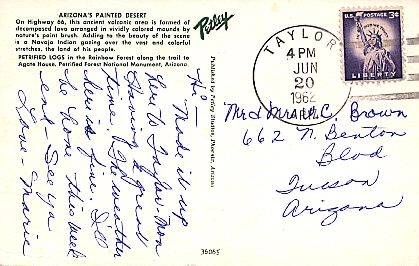 ARIZONA'S PAINTED DESERT
On Highway 66, this ancient volcanic area is formed of
decomposed lava arranged in vividly colored mounds by
nature's paint brush. Adding to the beauty of the scene
is a Navajo Indian gazing over the vast and colorful
stretches, the land of his people.
PETRIFIED LOGS in the Rainbow Forest along the trail to
Agate House, Petrified Forest National Monument, Arizona.
Petley
Published by Petley Studios, Phoenix, Arizona
Hi -
Made it up
here to Taylor - Mon
Having a good
time. The weather
here is fine. I'll
be home this week
end - See ya
Love - Marie
36065
TAYLOR
4 PM
JUN
20
1962
ARIZ.
U.S. POSTAGE
3¢
LIBERTY
Mr. & Mrs. M.C. Brown
662 N. Benton
Blvd
Tucson
Arizona